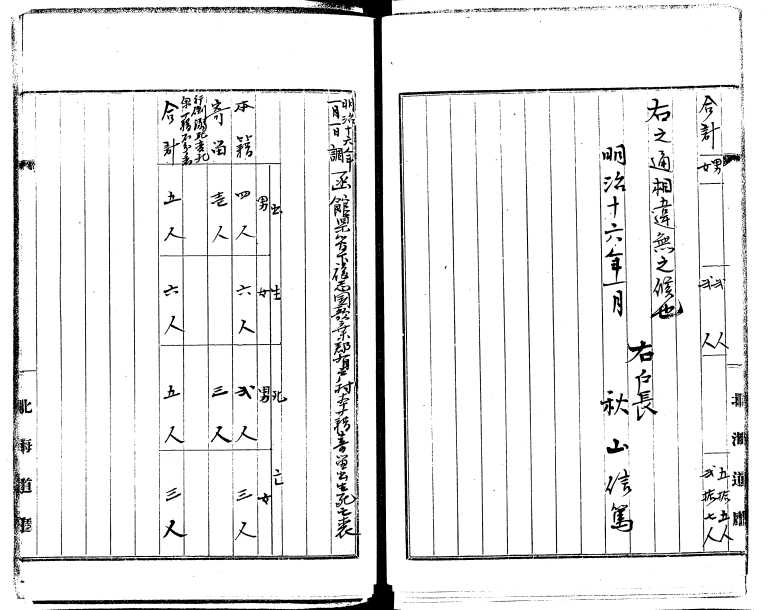 合計 男 弐人 五拾五人
女 弐人 弐拾七人
右之通相違無之候也
明治十六年一月
右戸長
秋山信篤
北海道廳
明治十六年
一月一日調
函館県管下後志国歌棄郡有戸村本籍寄留出生死亡表
出生 死亡
男 女 男 女
本籍 四人 六人 弐人 三人
寄留 壱人 三人
合計 五人 六人 五人 三人
北海道廳